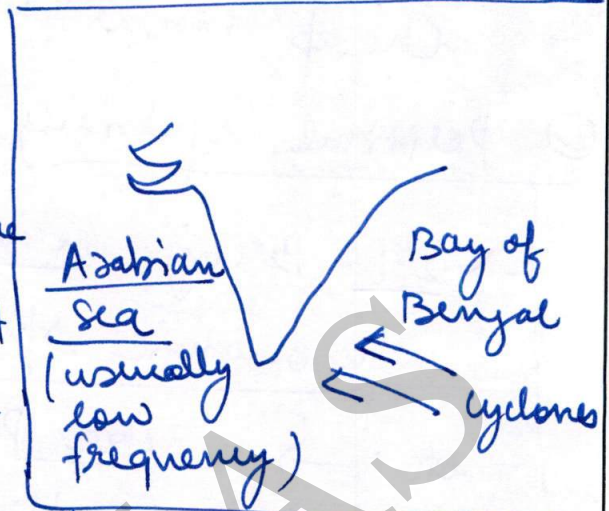 Arabian
sea
(usually
low
frequency)
Bay of
Bengal
cyclones
AS